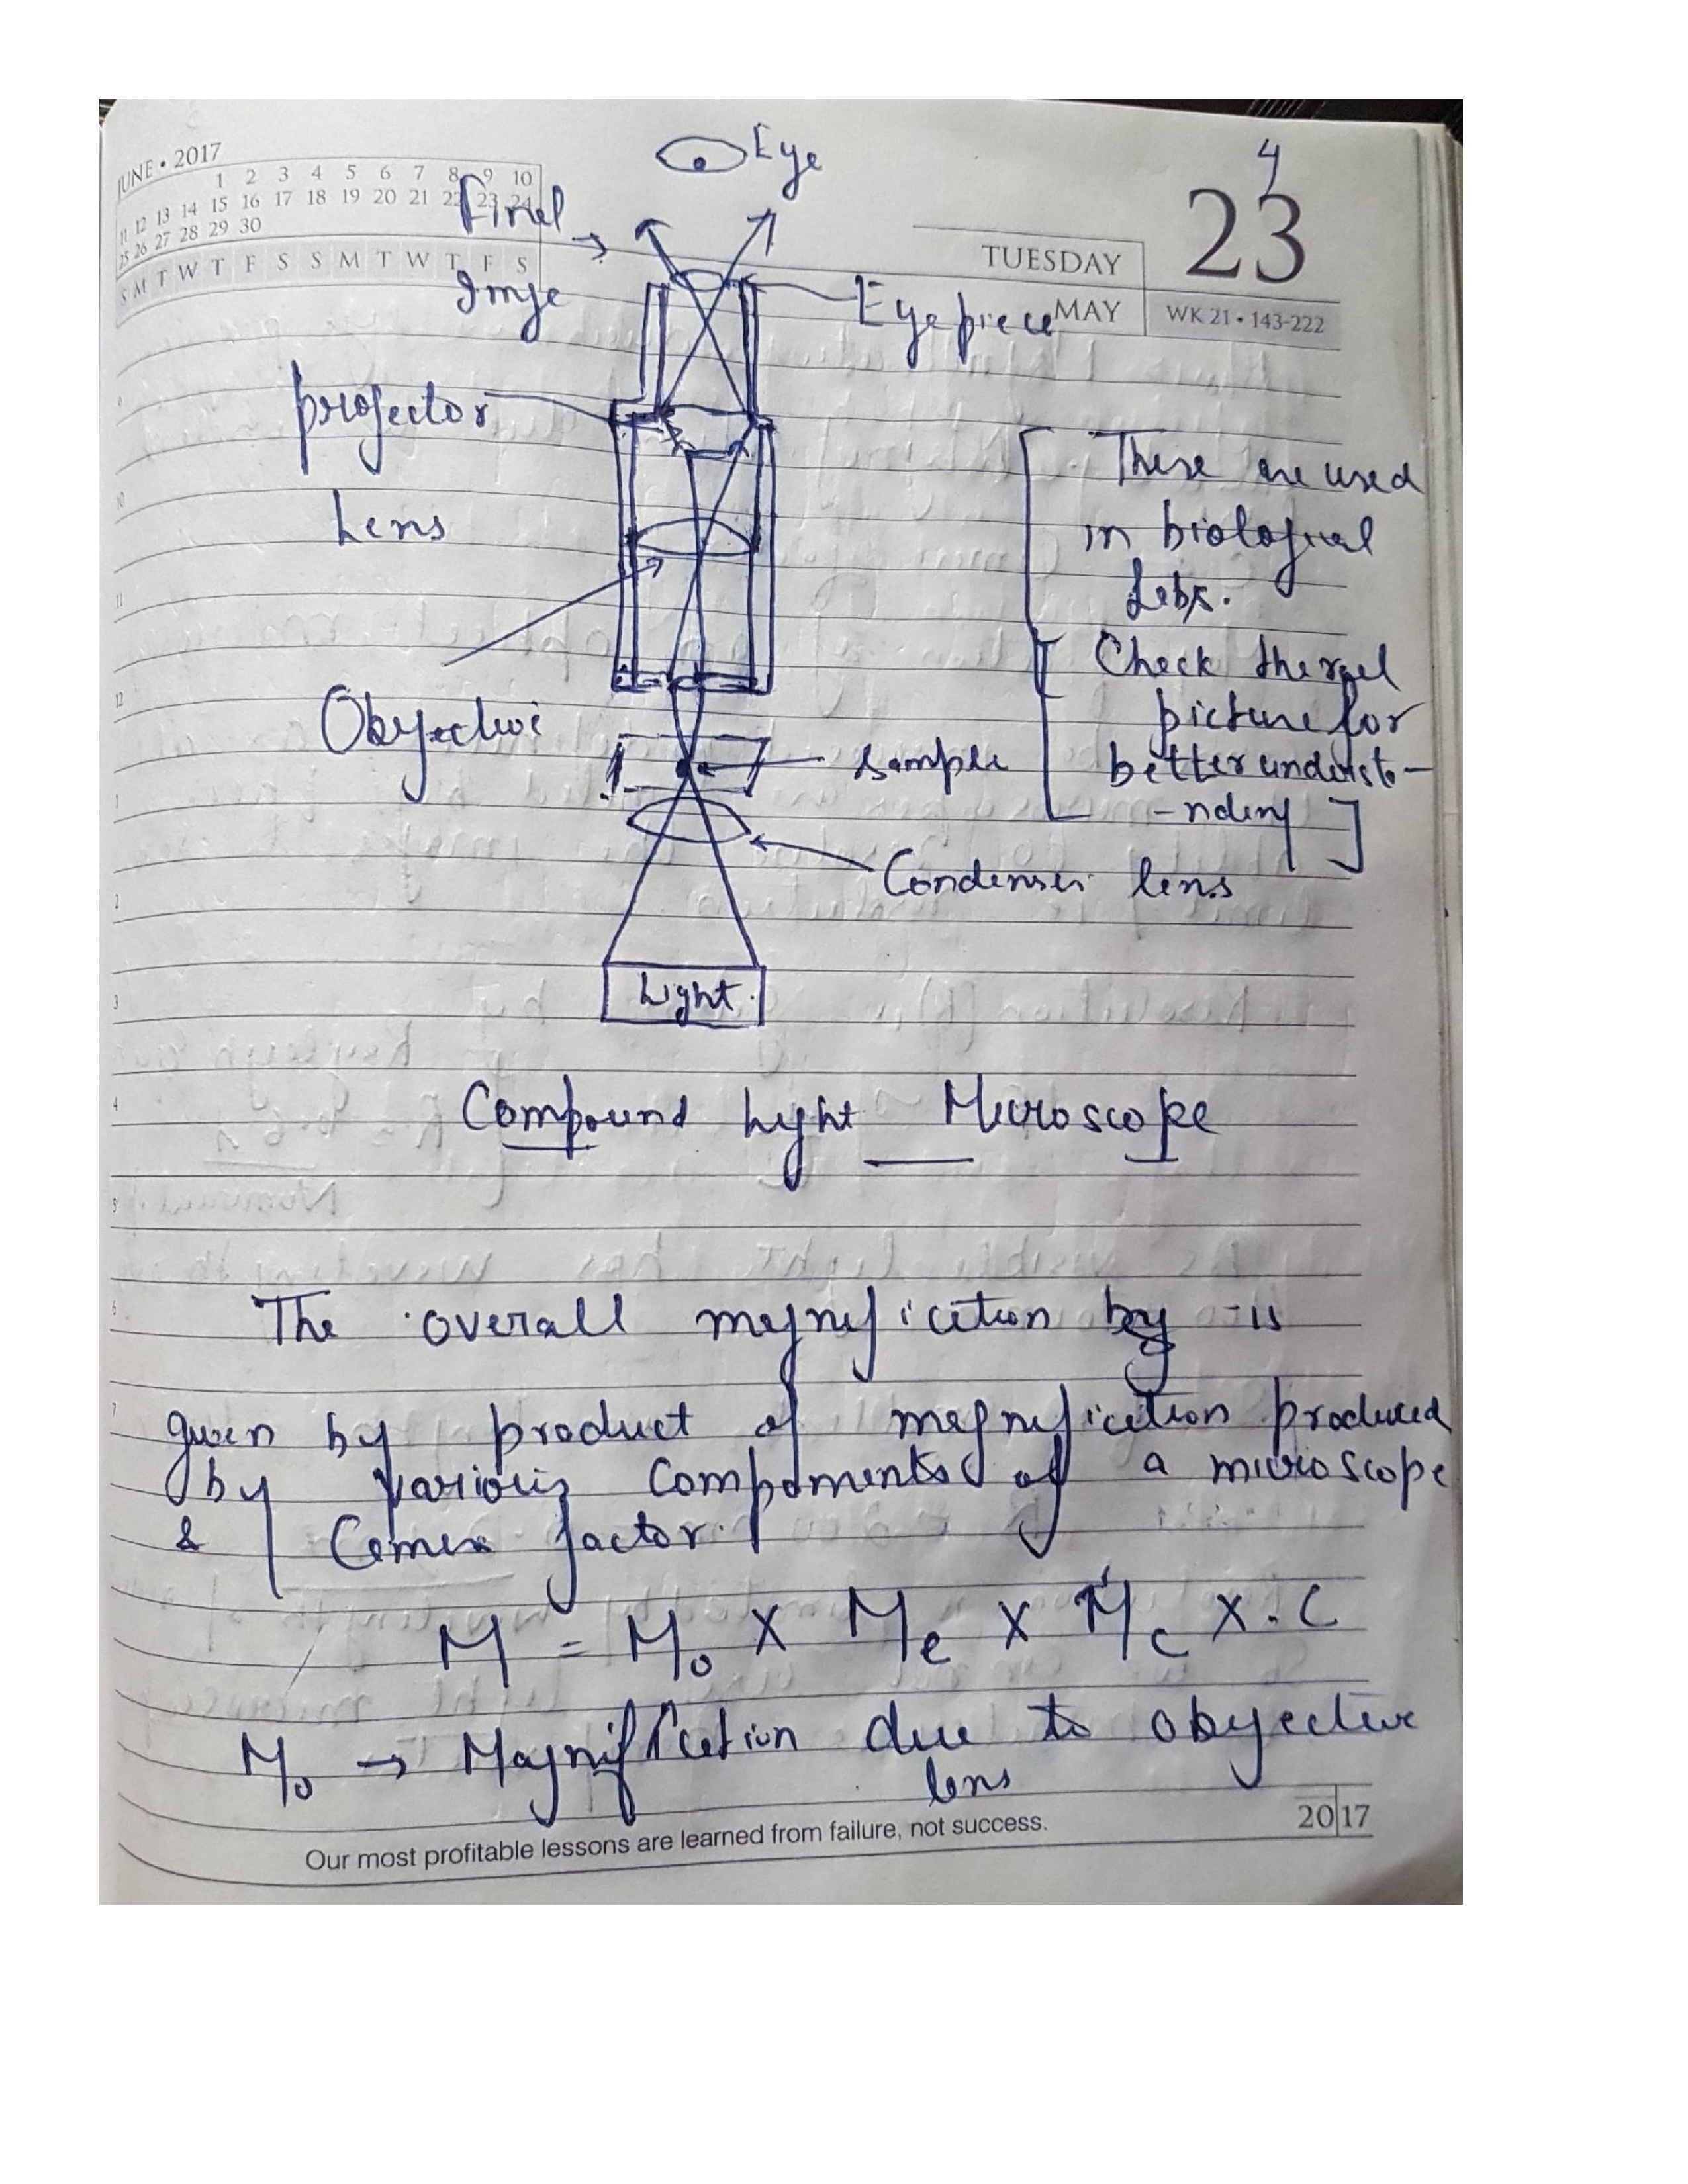 JUNE • 2017
1 2 3 4 5 6 7 8 9 10
11 12 13 14 15 16 17 18 19 20 21 22 23 24
25 26 27 28 29 30
S M T W T F S S M T W T F S
4
TUESDAY 23
MAY WK 21 • 143-222
Eye
Final
Imge
Eyepiece
projector
Lens
These are used
in biological
Labs.
Check the real
picture for
better understa-
-nding]
Objective
Sample
Condenser lens
Light
Compound Light Microscope
The overall magnification by is
given by product of magnification produced
by various components of a microscope
& Camera factor.
M = Mo X Me X Mc X C
Mo → Magnification due to obyective
lens
9
10
11
12
1
2
3
4
5
6
7
Our most profitable lessons are learned from failure, not success.
2017